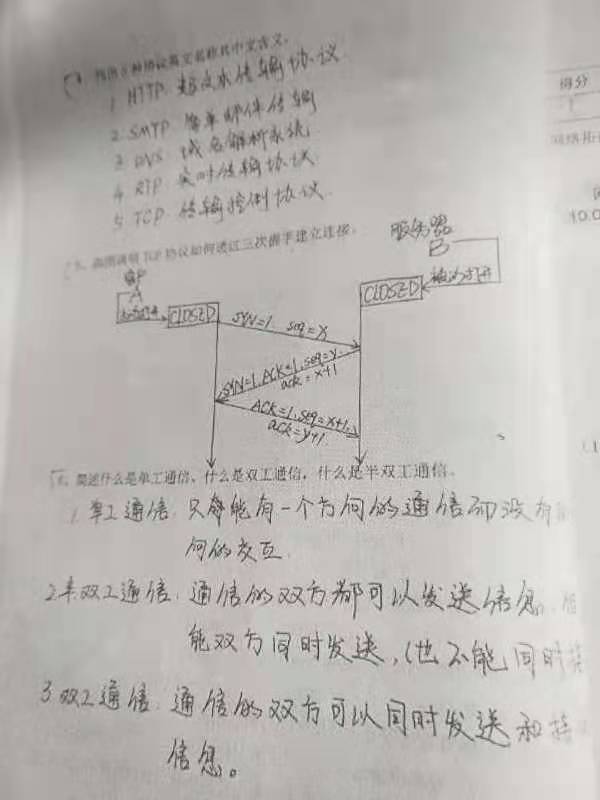 4、列出5种协议英文名称其中文含义。
1. HTTP: 超文本传输协议.
2. SMTP: 简单邮件传输
3. DNS: 域名解析系统
4. RTP: 实时传输协议.
5. TCP: 传输控制协议.
得分
5、画图说明TCP协议如何透过三次握手建立连接。
10.0
客户
A
主动打开
CLOSED
服务器
B
被动打开
CLOSED
SYN=1. seq=x
SYN=1.ACK=1.seq=y.
ack=x+1
ACK=1.seq=x+1.
ack=y+1
6、简述什么是单工通信、什么是双工通信，什么是半双工通信。
1.单工通信: 只能有一个方向的通信而没有
向的交互.
2.半双工通信: 通信的双方都可以发送信息,
能双方同时发送,(也不能同时
3.双工通信: 通信的双方可以同时发送和接
信息。